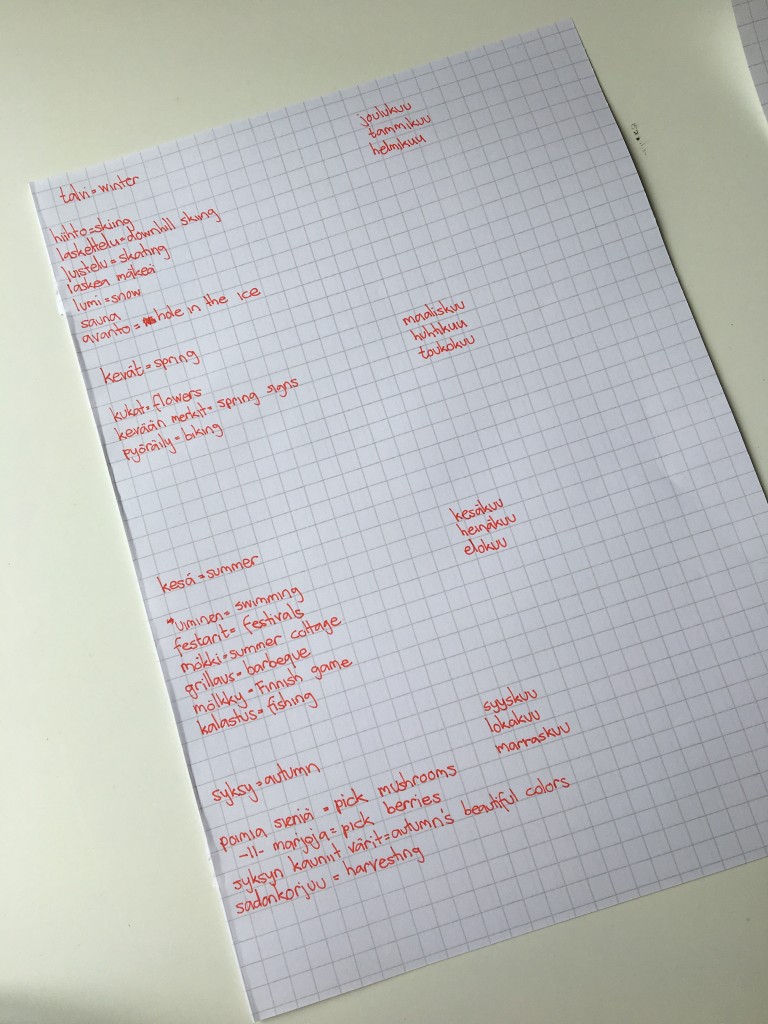 joulukuu
tammikuu
helmikuu
talvi = winter
hiihto = skiing
laskettelu = downhill skiing
luistelu = skating
laskea mäkeä
lumi = snow
sauna
avanto = hole in the ice
maaliskuu
huhtikuu
toukokuu
kevät = spring
kukat = flowers
kevään merkit = spring signs
pyöräily = biking
kesäkuu
heinäkuu
elokuu
kesä = summer
uiminen = swimming
festarit = festivals
mökki = summer cottage
grillaus = barbeque
mölkky = Finnish game
kalastus = fishing
syyskuu
lokakuu
marraskuu
syksy = autumn
poimia sieniä = pick mushrooms
-11- marjoja = pick berries
syksyn kauniit värit = autumn's beautiful colors
sadonkorjuu = harvesting